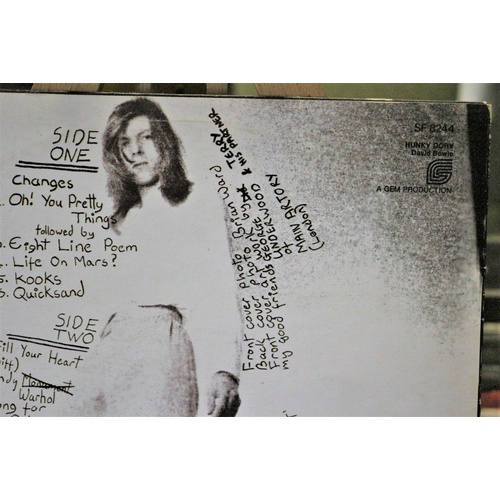 SIDE
ONE
Changes
Oh! You Pretty
Things
followed by
Eight Line Poem
Life On Mars?
5. Kooks
Quicksand
SIDE
TWO
Fill Your Heart
Warhol
for
Front cover photo Brian Ward
Back cover photo
Front cover art work TERRY
& HIS PARTNER
my good friends GEORGE UNDERWOOD
of
MAIN ARTORY
(London)
SF 8244
HUNKY DORY
David Bowie
A GEM PRODUCTION